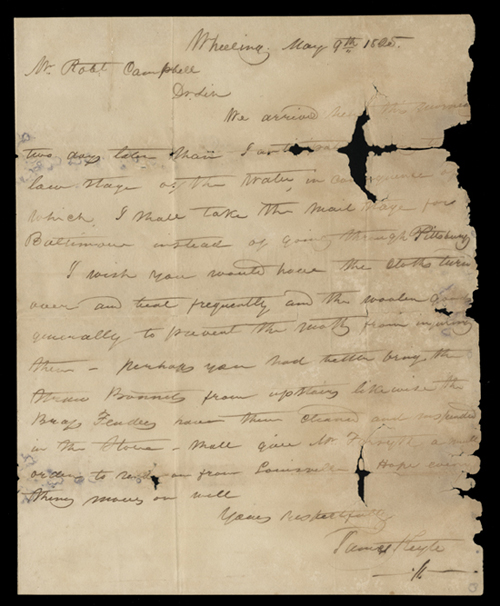 Wheeling May 9th 1825.
Mr Robt Campbell
Dr Sir
We arrived here this
two days later than I
low stage of the water, in consequence of
which, I shall take the mail stage for
Baltimore instead of going through Pittsburg
I wish you would have the cloths turn
over and beat frequently and the woolen goods
generally to prevent the moth from injuring
them - perhaps you had better bring the
straw Bonnets from upstairs likewise the
Brass Fenders have them cleaned and suspended
in the Store - shall give Mr a
orders to from Louisville Hope every
thing moves on well
Yours respectfully
James Keyte